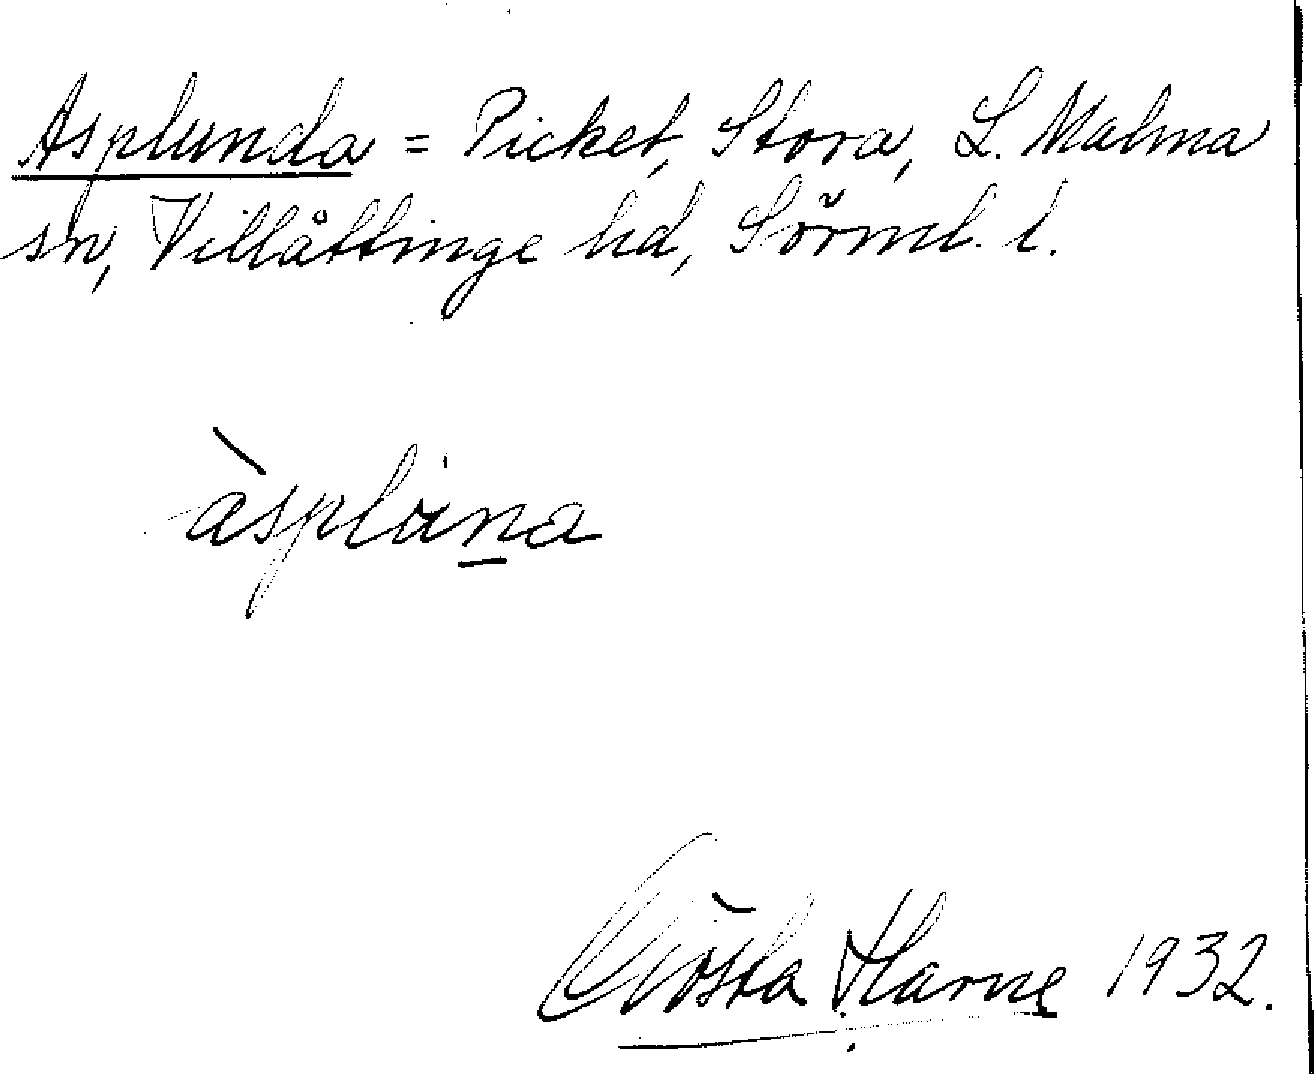 Asplunda = Picket, Stora, L. Malma
sn, Villåttinge hd, Sörml. l.
àspluna
Gösta Harne 1932.